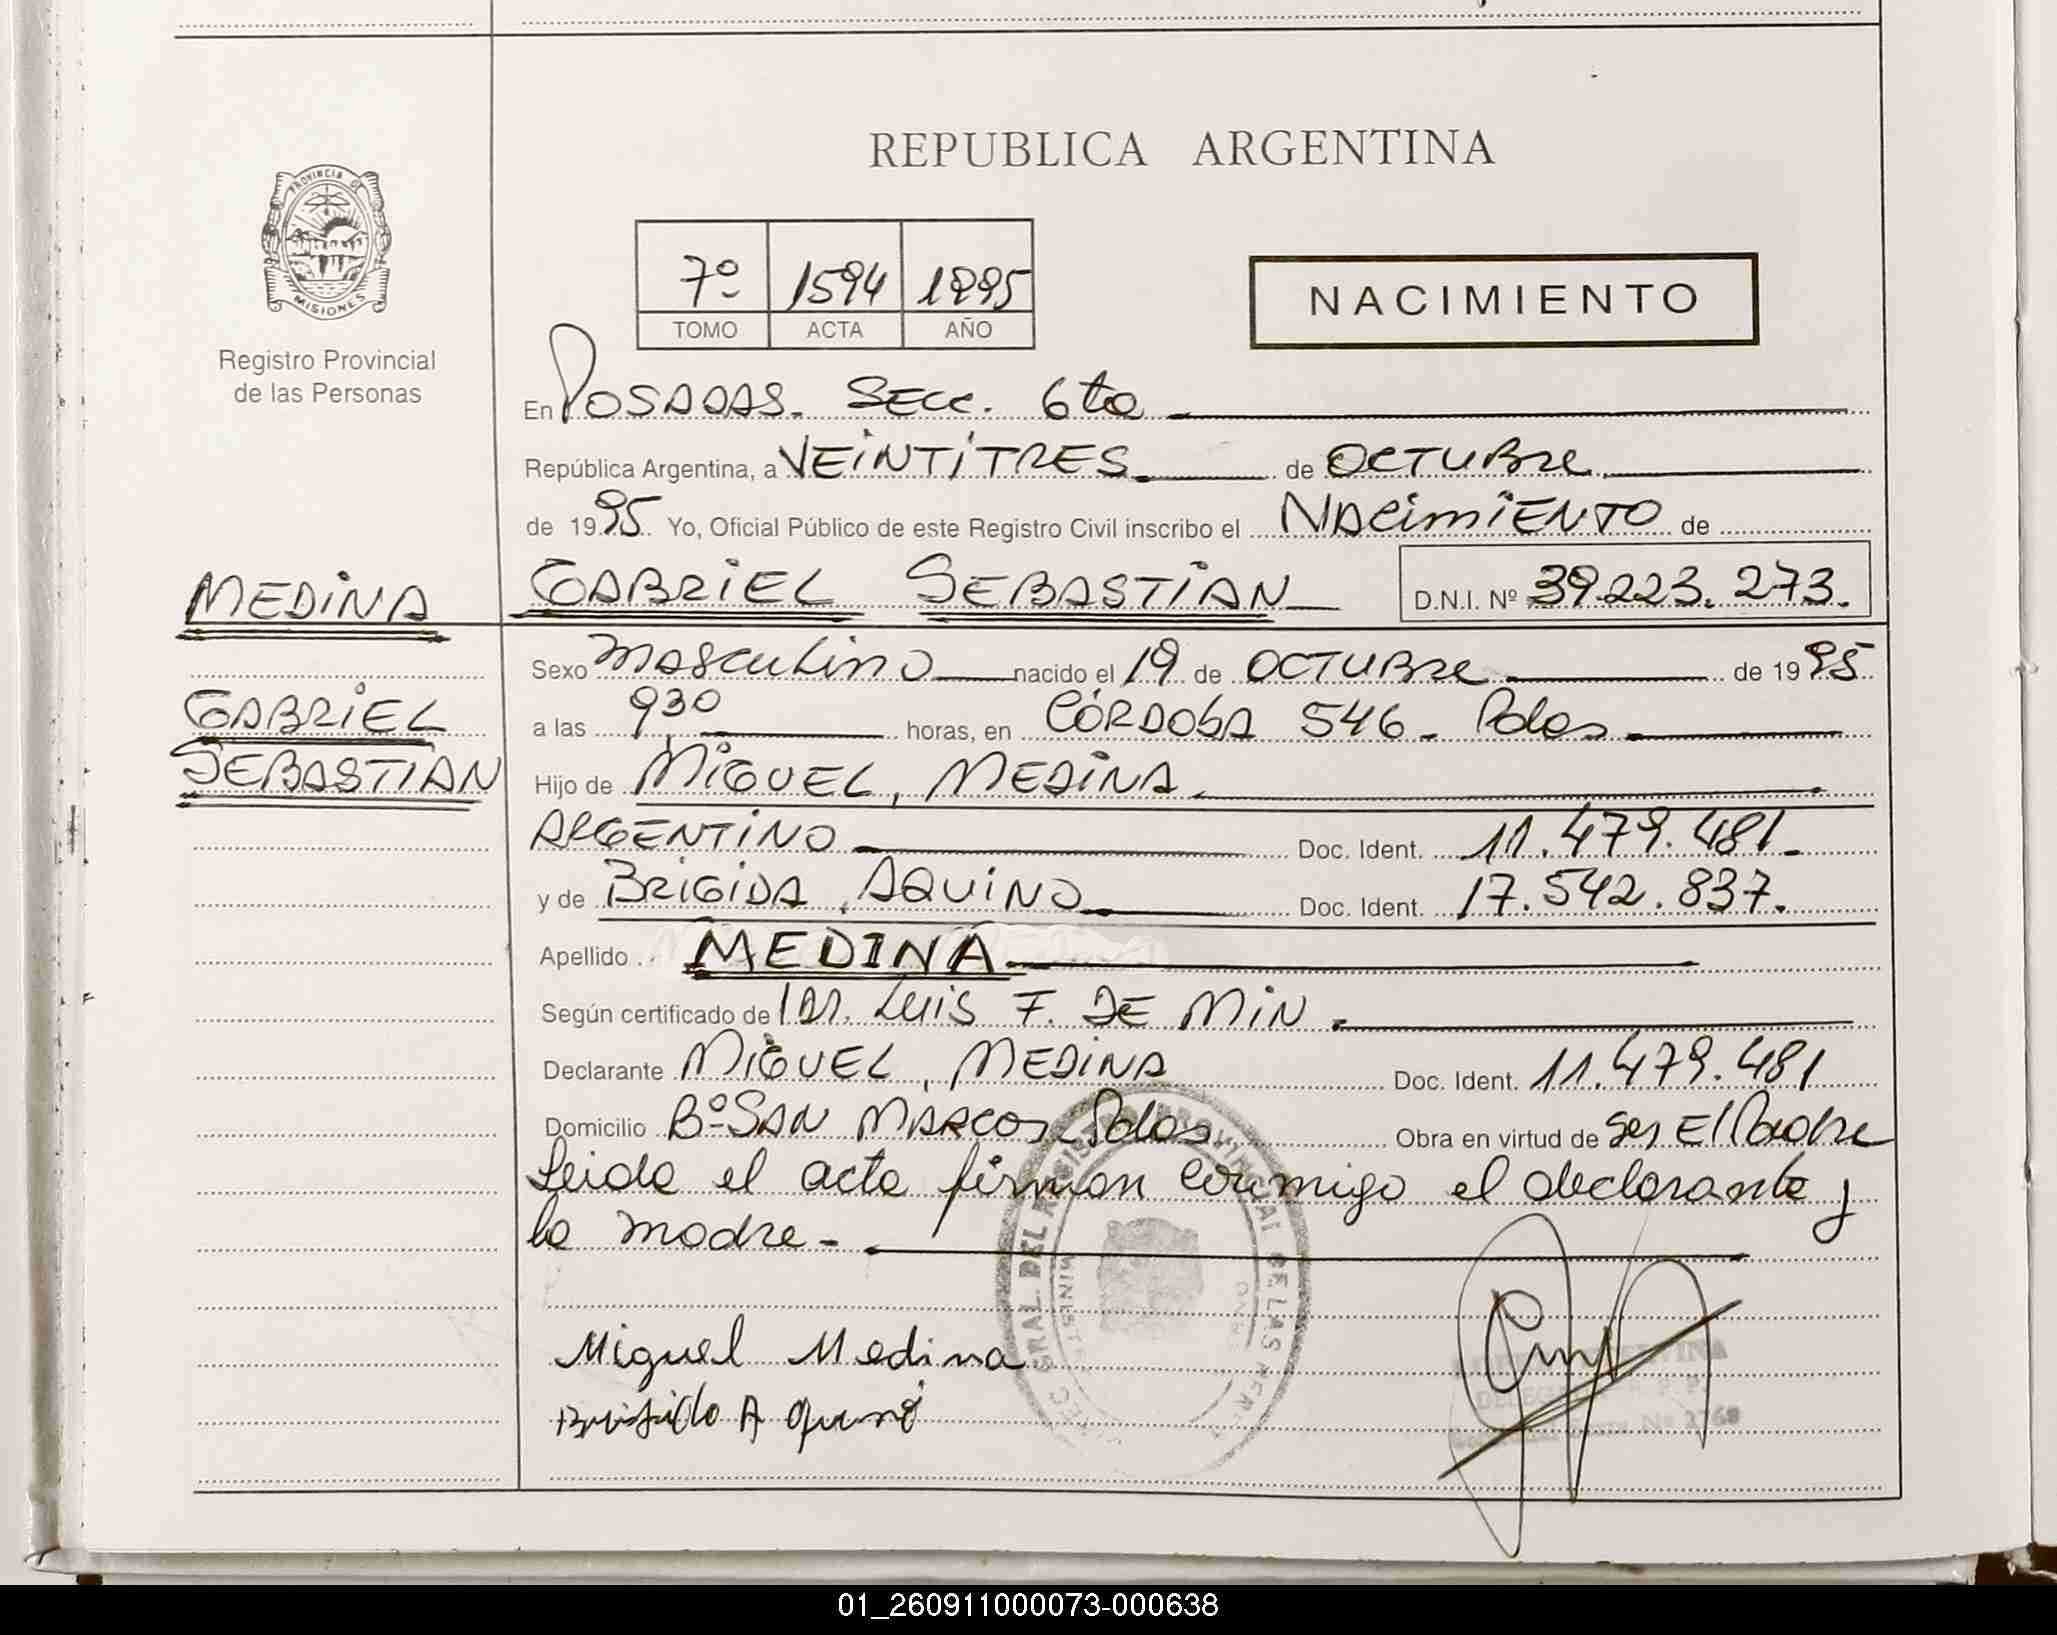 REPUBLICA ARGENTINA
PROVINCIA DE
MISIONES
Registro Provincial
de las Personas
7º 1594 1995
TOMO ACTA AÑO
NACIMIENTO
En POSADAS. SECC. 6ta
República Argentina, a VEINTITRES de OCTUBRE
de 1995 Yo, Oficial Público de este Registro Civil inscribo el NACIMIENTO de
MEDINA
GABRIEL SEBASTIAN D.N.I. Nº 39.223.273.
Sexo MASCULINO nacido el 19 de OCTUBRE de 1995
GABRIEL
SEBASTIAN
a las 9,30 horas, en CÓRDOBA 546 - Pdas
Hijo de MIGUEL, MEDINA
ARGENTINO Doc. Ident. 11.479.481.
y de BRIGIDA, AQUINO Doc. Ident. 17.542.837.
Apellido MEDINA
Según certificado de DR. LUIS F. DE MIN.
Declarante MIGUEL, MEDINA Doc. Ident. 11.479.481
Domicilio Bº SAN MARCOS Pdas. Obra en virtud de ser El Padre
Leida el acta firman conmigo el declarante y
la madre.-
Miguel Medina
01_260911000073-000638